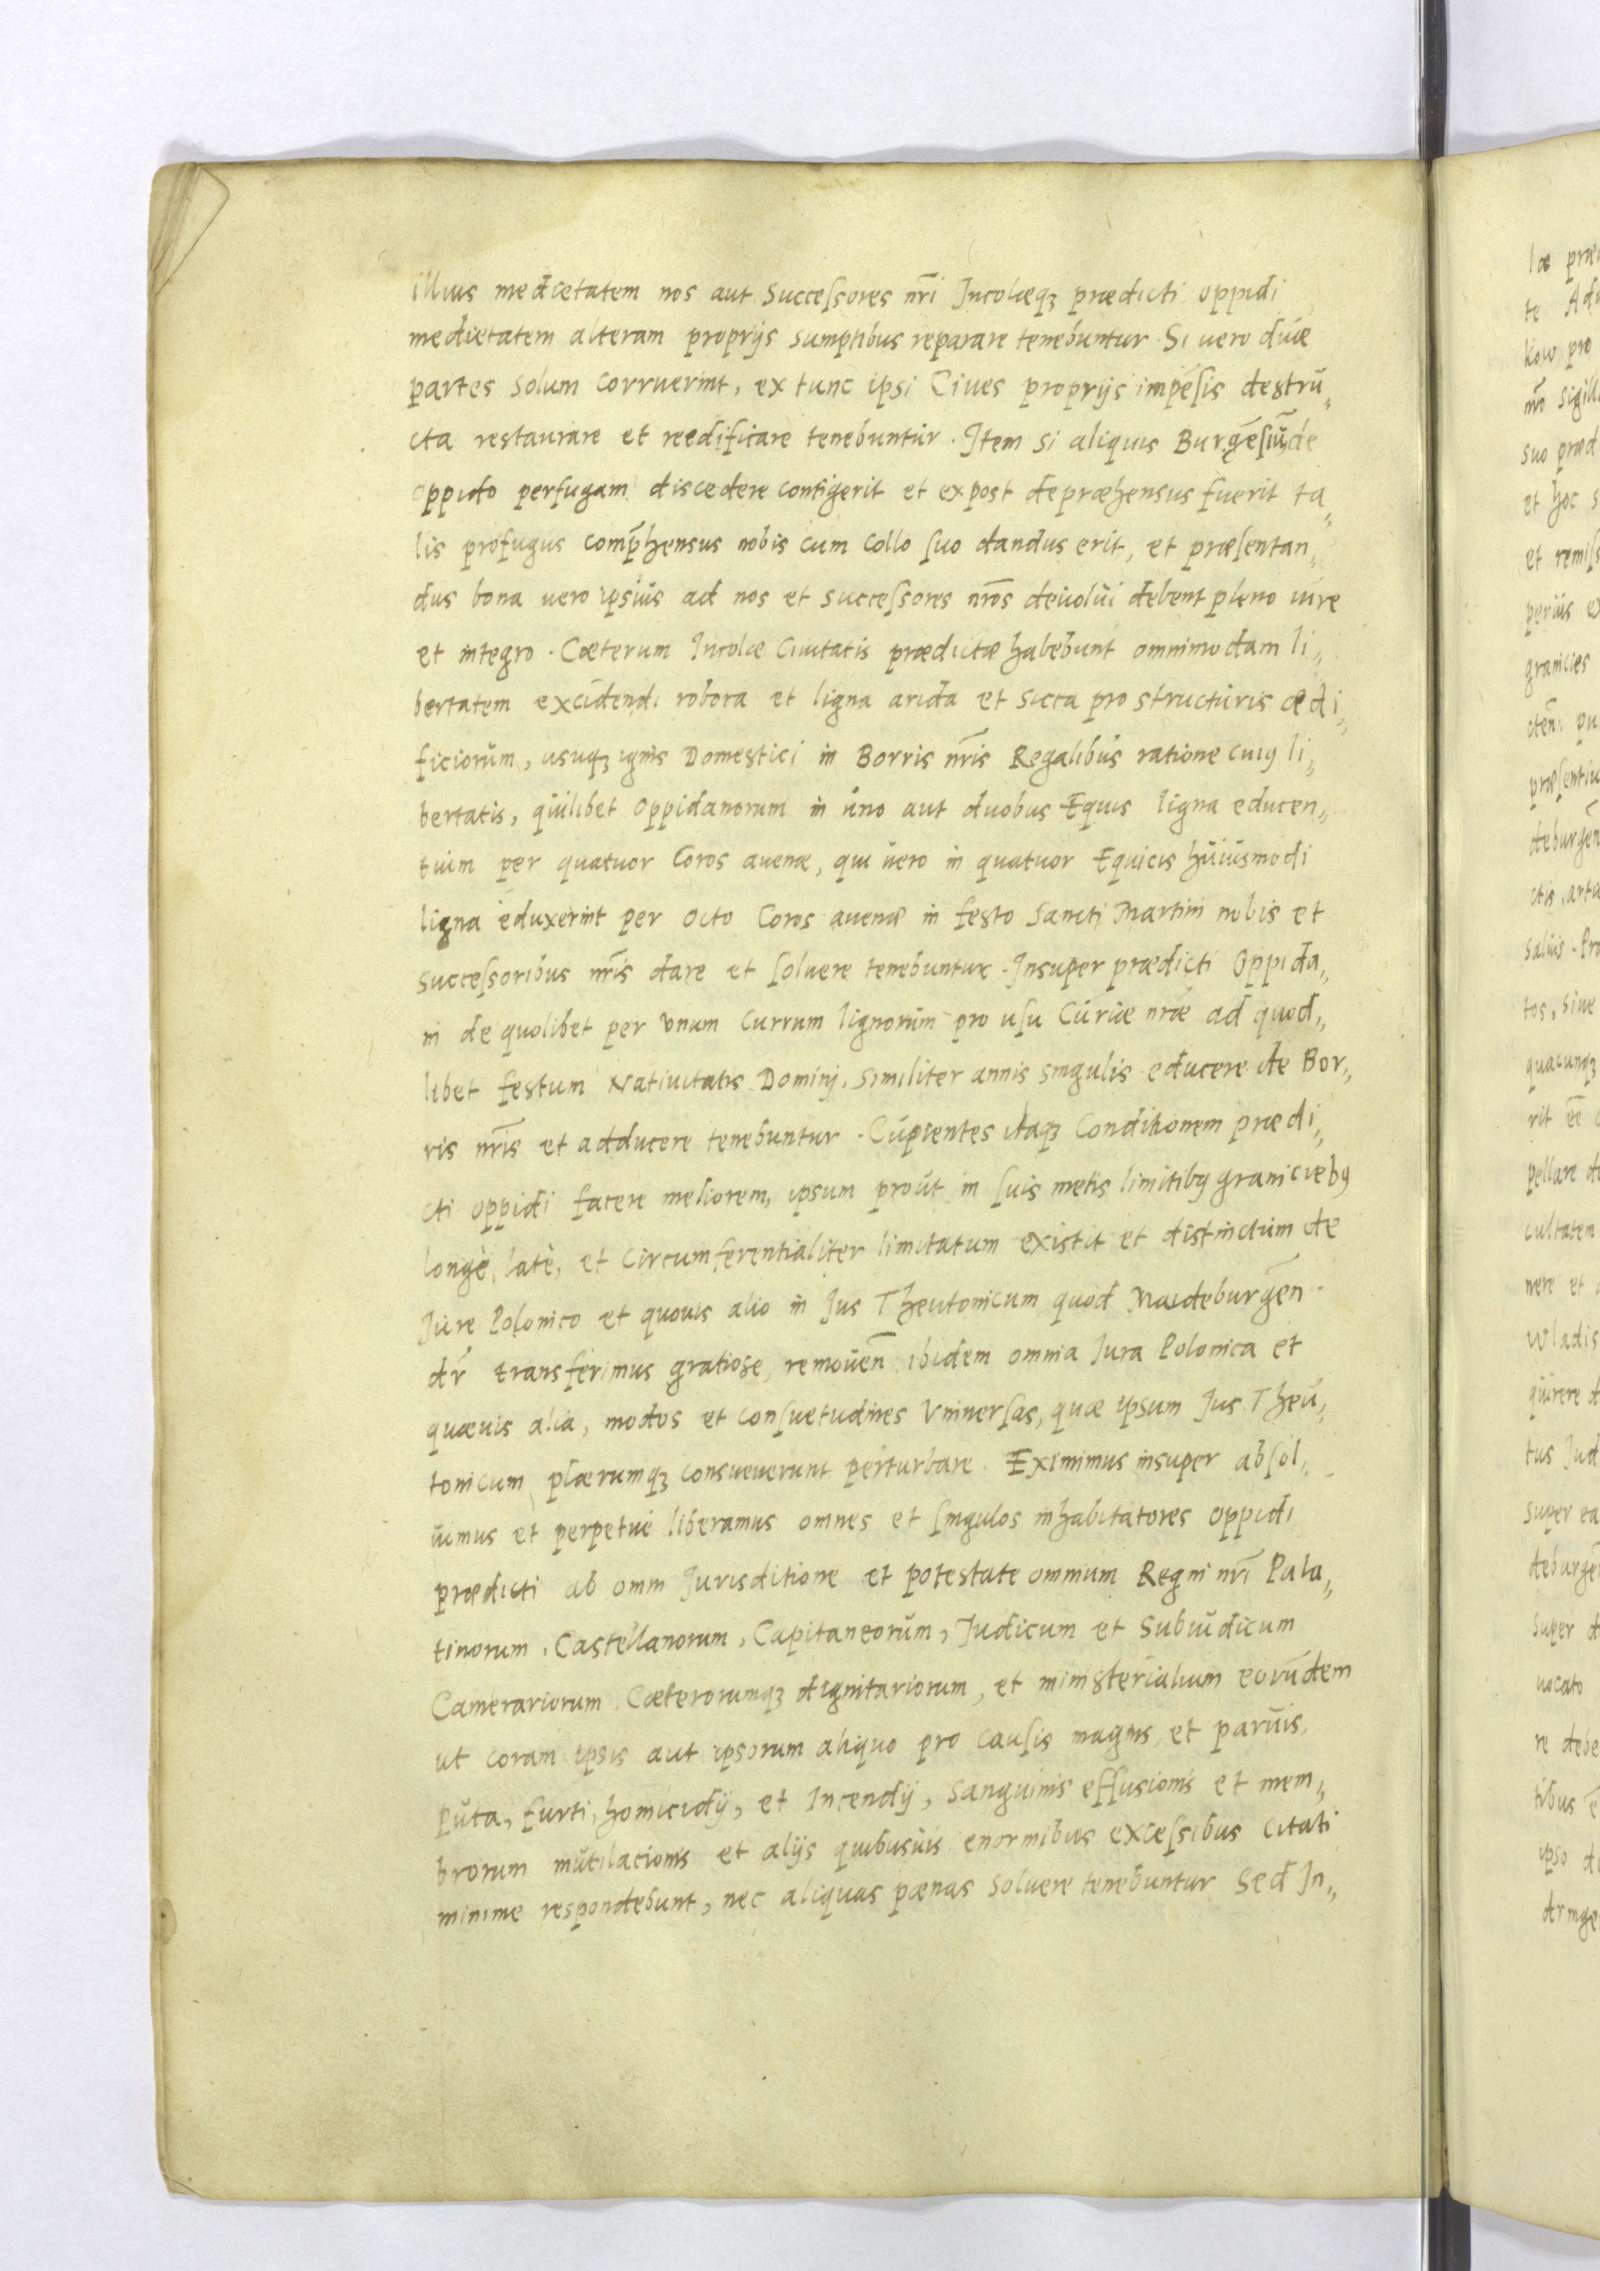 illius medietatem nos aut Successores nr̃i Incolæq₃ prædicti oppidi
medietatem alteram proprijs sumptibus reparare tenebuntur. Si vero duæ
partes solum corruerint, ex tunc ipsi Ciues proprijs impẽsis destru„
cta restaurare et reedificare tenebuntur. Item si aliquis Burgẽsiũ de
oppido perfugam discedere contigerit et ex post depræhensus fuerit ta„
lis profugus comp̃hensus nobis cum collo suo dandus erit, et præsentan„
dus bona vero ipsius ad nos et successores nr̃os deuolui debent pleno iure
et integro. Cæterum Incolæ Ciuitatis prædictæ habebunt omnimodam li„
bertatem excidendi robora et ligna arida et sicca pro structuris ædi„
ficiorum, usuq₃ ignis Domestici in Borris nr̃is Regalibus ratione cuiꝰ li„
bertatis, quilibet oppidanorum in uno aut duobus Equis ligna educen„
tium per quatuor Coros auenæ, qui vero in quatuor Equicis huiusmodi
ligna eduxerint per octo Coros auenæ in festo Sancti Martini nobis et
successoribus nr̃is dare et soluere tenebuntur. Insuper prædicti Oppida„
ni de quolibet per unum currum lignorum pro usu Curiæ nr̃æ ad quod„
libet festum Natiuitatis Domini, similiter annis singulis educere de Bor„
ris nr̃is et adducere tenebuntur. Cupientes itaq₃ Conditionem prædi„
cti oppidi facere meliorem, ipsum prout in suis metis limitibꝰ graniciebꝰ
longè, latè, et circumferentialiter limitatum existit et distinctum de
Jure Polonico et quouis alio in Jus Theutonicum quod Maideburgẽn.
dr̃ transferimus gratiose, remouen̄ ibidem omnia Jura Polonica et
quæuis alia, modos et consuetudines Vniuersas, quæ ipsum Jus Theu„
tonicum plærumq₃ consueuerunt perturbare. Eximimus insuper absol„
uimus et perpetuè liberamus omnes et singulos inhabitatores oppidi
prædicti ab omni Jurisditione et potestate omnium Regni nr̃i Pala„
tinorum, Castellanorum, Capitaneorum, Judicum et Subiudicum
Camerariorum Cæterorumq₃ dignitariorum, et ministerialium eorundem
ut coram ipsis aut ipsorum aliquo pro causis magnis et paruis,
puta, furti, homicidij, et Incendij, sanguinis effusionis et mem„
brorum mutilacionis et alijs quibusuis enormibus excessibus citati
minime respondebunt, nec aliquas pænas soluere tenebuntur Sed In„